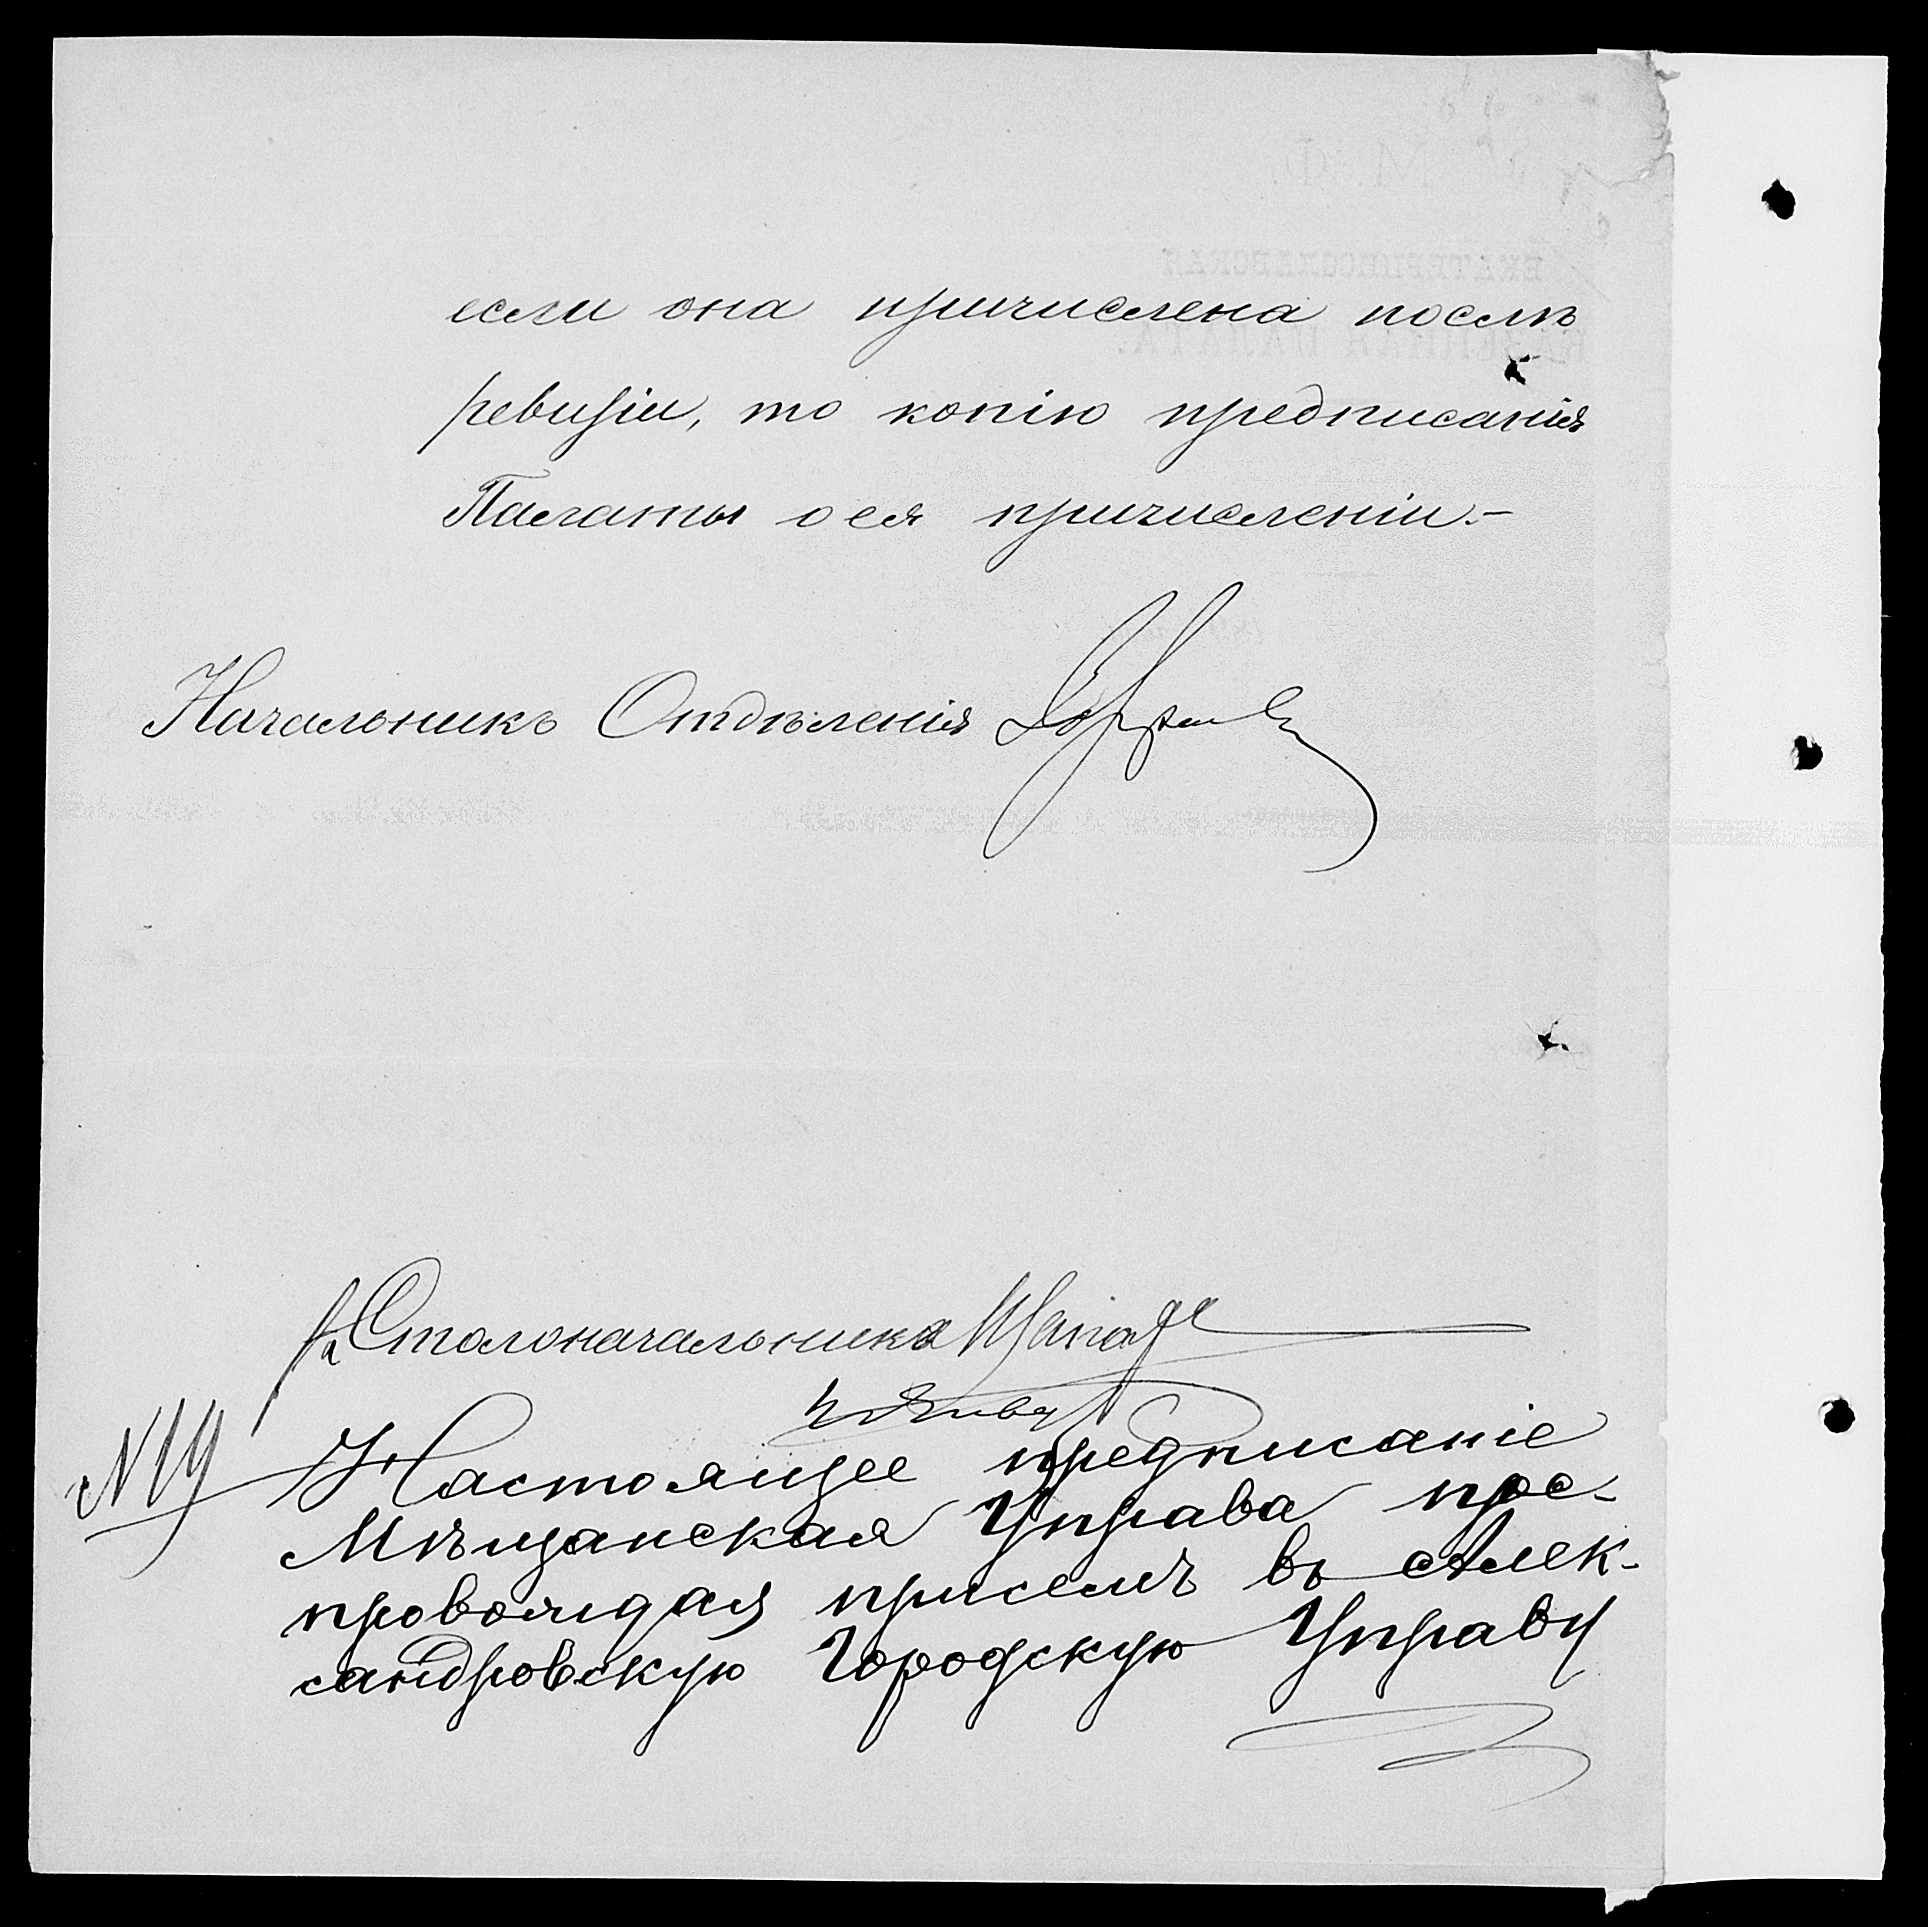 если она причислена послѣ
ревизіи, то копію предписанія
Палаты о ея причисленіи.-
Начальникъ Отдѣленія
Столоначальника
N 19
Настоящее предписаніе
Мѣщанская Управа пре-
провождая при семъ въ Алек-
сандровскую Городскую Управу